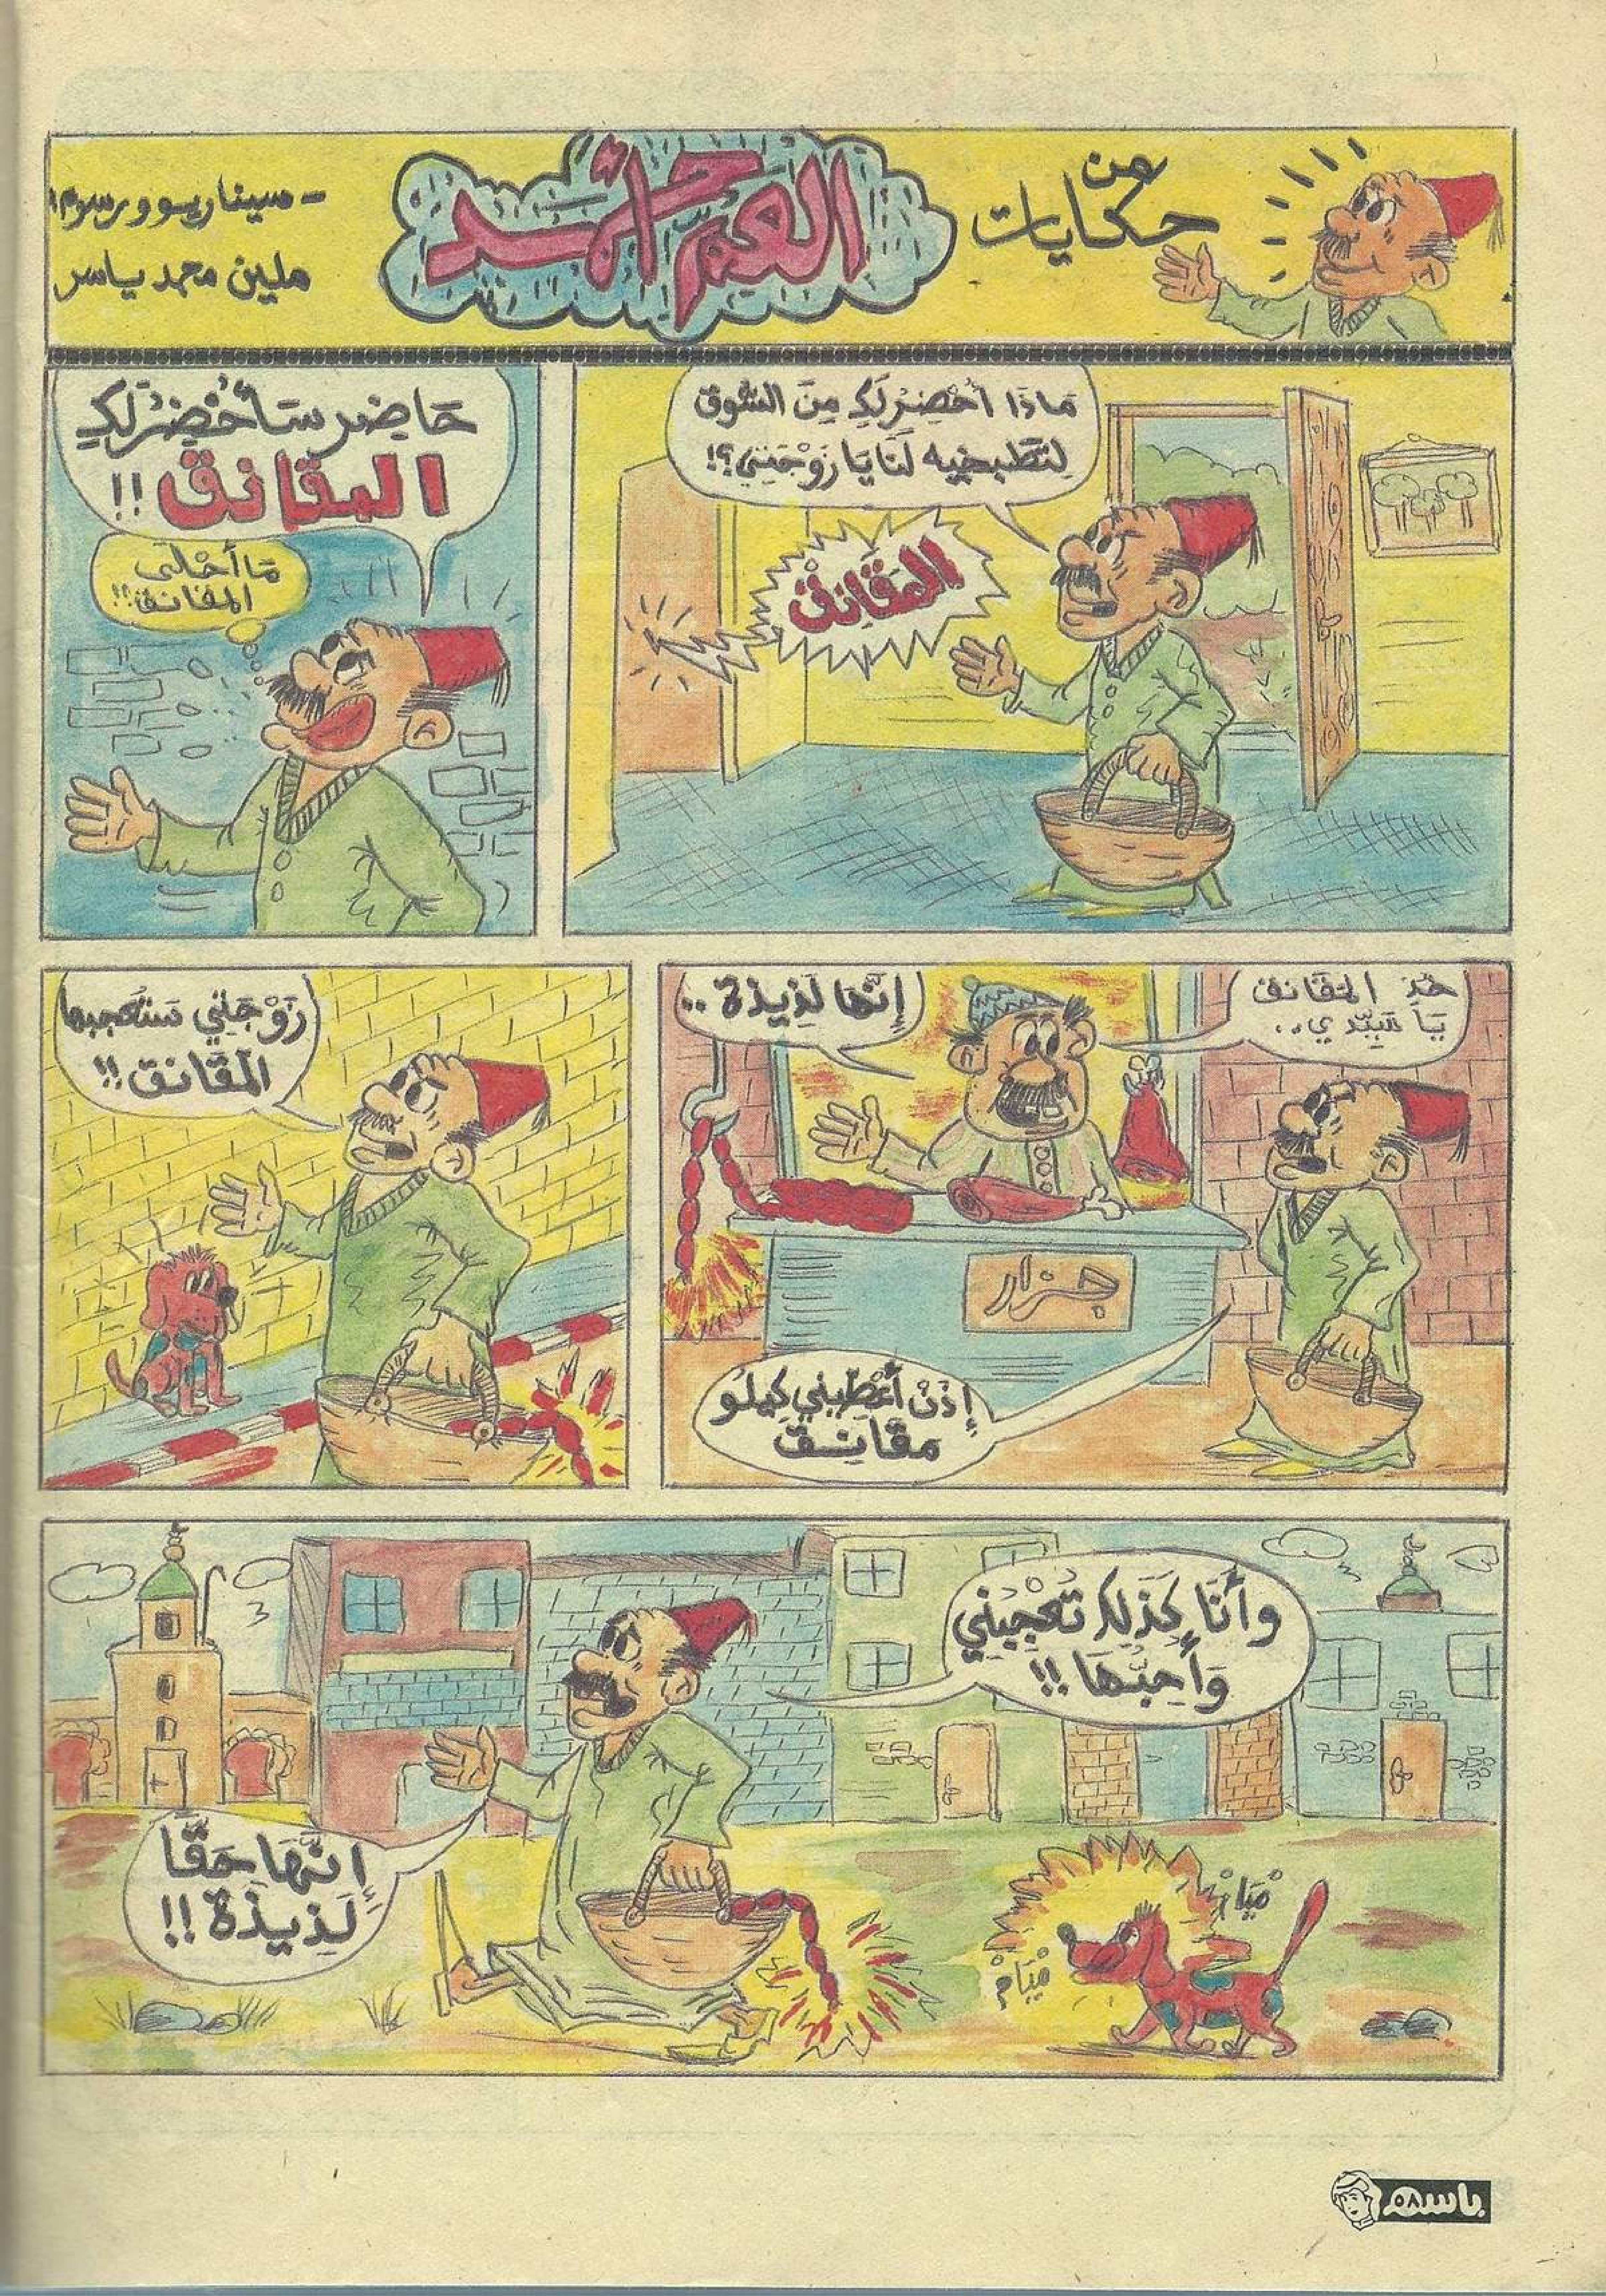 من
حكايات
العم حمد
- سيناريو ورسوم
ملين محمد ياسر
مَاذَا أُحْضِرُ لَكِ مِنَ السُّوقِ
لِتَطْبخِيهِ لَنَا يَا زَوْجَتِي؟!
المقَانِق
حَاضِر سَأُحْضِرُ لَكِ
المقانق!!
مَا أَحْلَى
المقانق!!
خُذِ المَقَانق
يَا سَيِّدِي..
إِنَّهَا لَذِيذَة..
جزار
إِذَنْ أَعْطِينِي كِيلُو
مقَانِق
زَوْجَتِي سَتُعْجِبهَا
المَقَانق!!
وأَنَا كَذَلِكَ تُعْجِبُنِي
وَأُحِبُّهَا!!
مْيَامْ
مْيَامْ
إِنَّهَا حَقًّا
لَذِيذَة!!
باسم
٥٨